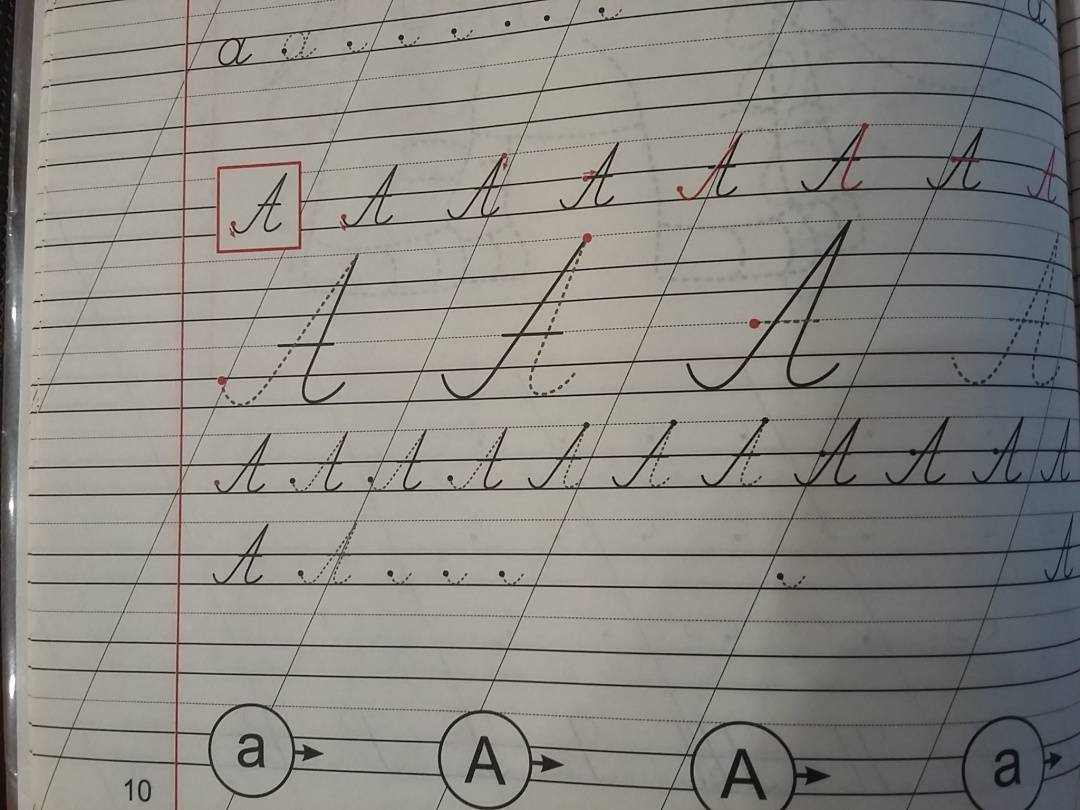 а а а
А А А А А А А А
А А А А
А А А А А А А А А А А
А А А
а А А а
10